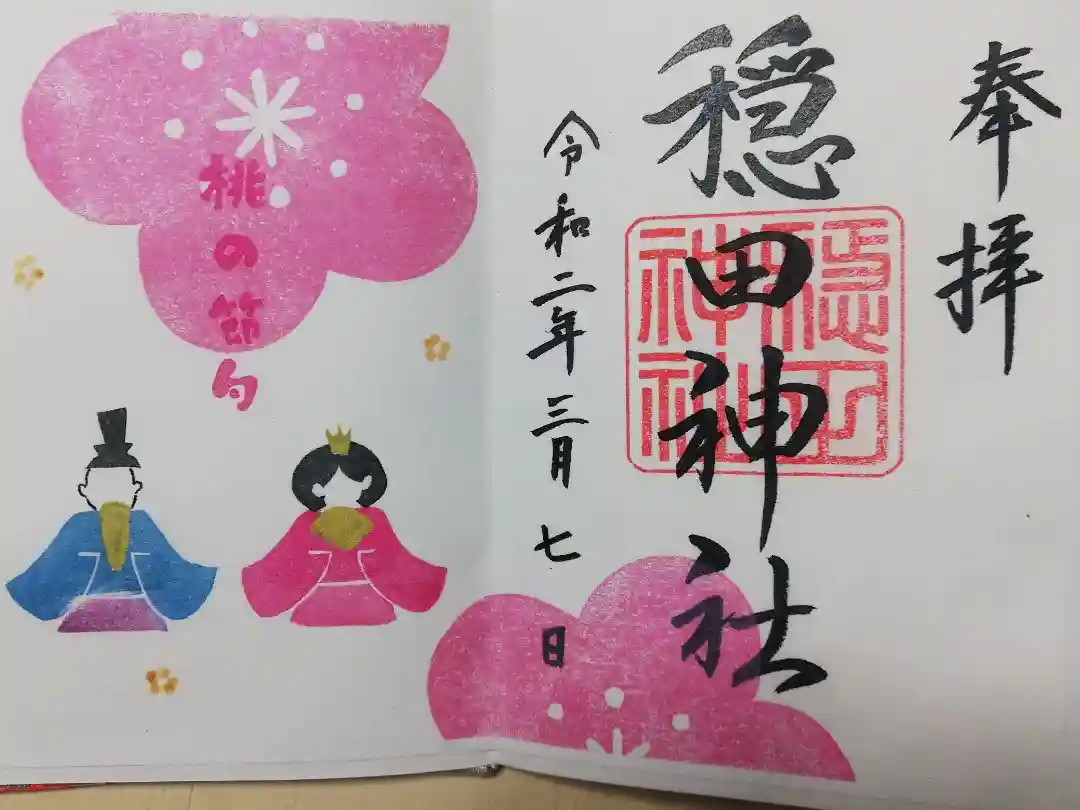 奉拝
穏田神社
穏田神社
令和二年三月七日
桃の節句